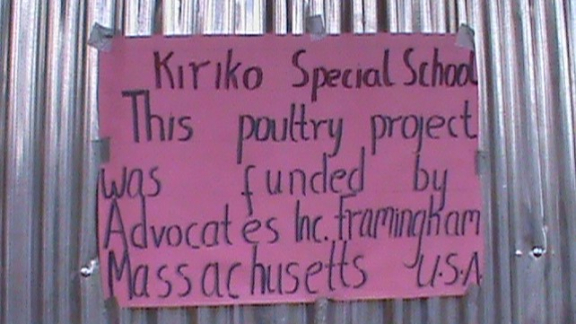 Kiriko Special School
This poultry project
was funded by
Advocates Inc. Framingham
Massachusetts U.S.A